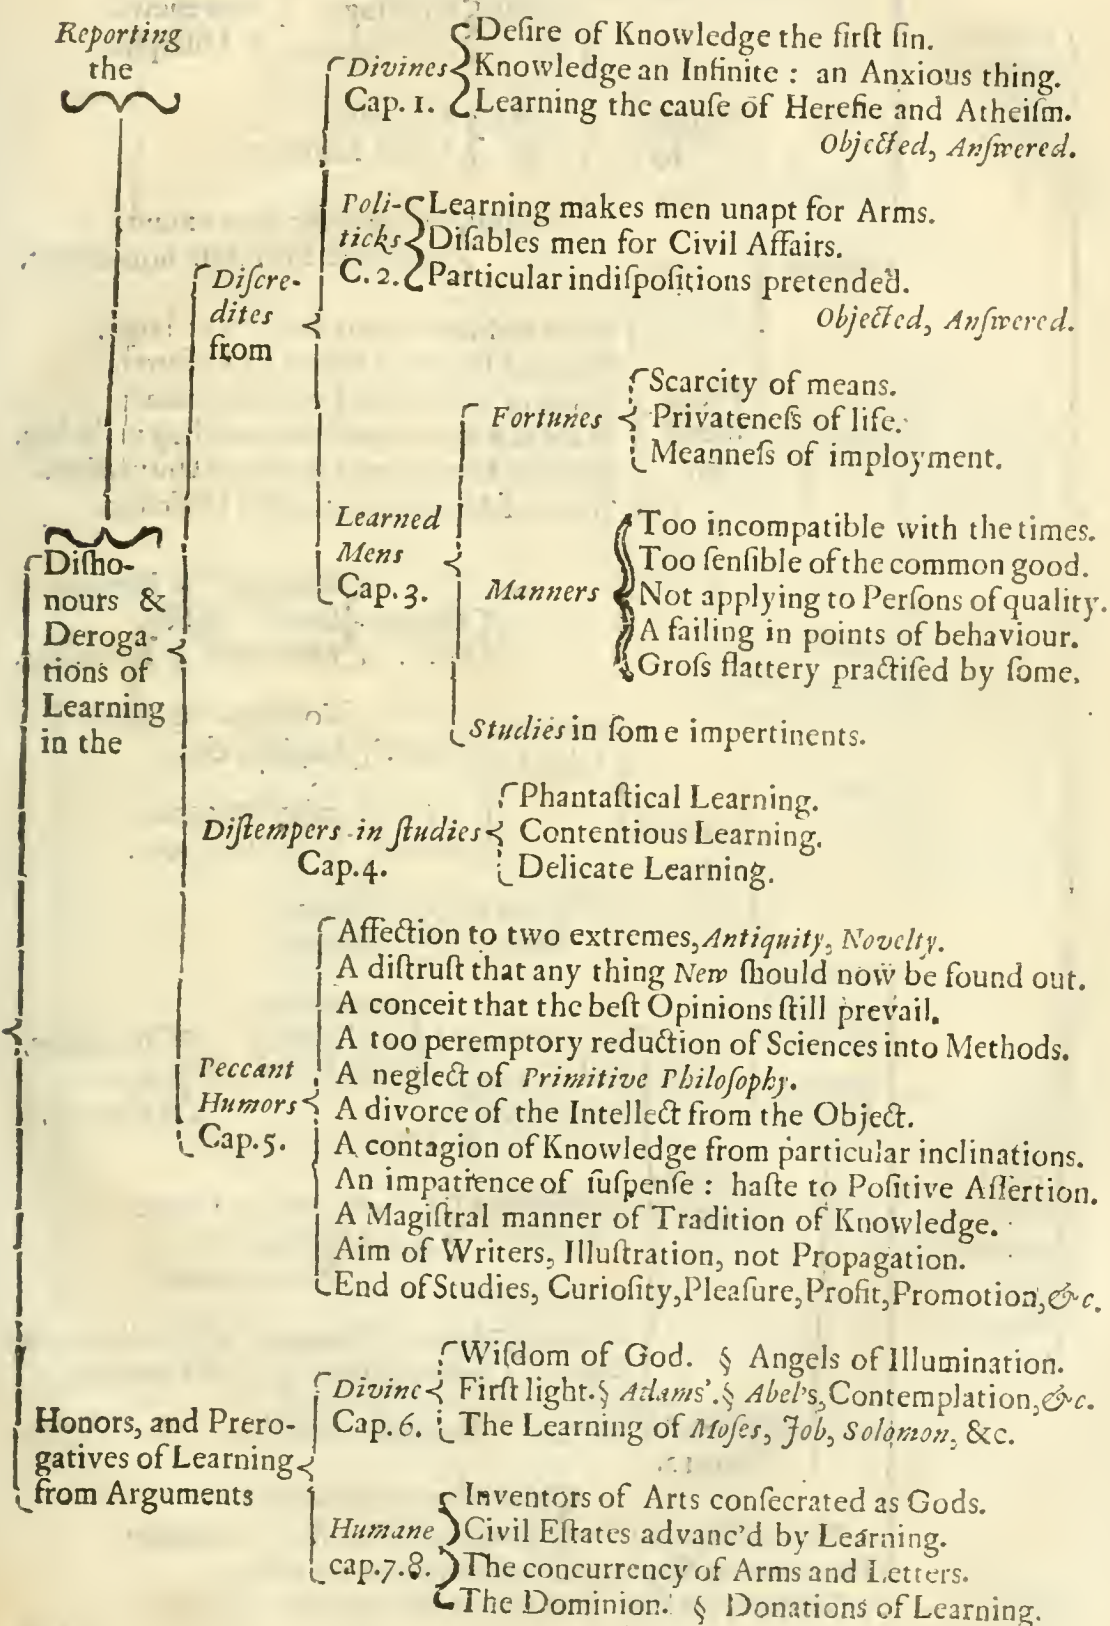 Reporting
the
Diſhonours &
Derogations of
Learning
in the
Diſcredites
from
Divines
Cap. 1.
Deſire of Knowledge the firſt ſin.
Knowledge an Infinite : an Anxious thing.
Learning the cauſe of Hereſie and Atheiſm.
Objected, Anſwered.
Politicks
C. 2.
Learning makes men unapt for Arms.
Diſables men for Civil Affairs.
Particular indiſpoſitions pretended.
Objected, Anſwered.
Learned
Mens
Cap. 3.
Fortunes
Scarcity of means.
Privateneſs of life.
Meanneſs of imployment.
Manners
Too incompatible with the times.
Too ſenſible of the common good.
Not applying to Perſons of quality.
A failing in points of behaviour.
Groſs flattery practiſed by ſome.
Studies in ſome impertinents.
Diſtempers in ſtudies
Cap. 4.
Phantaſtical Learning.
Contentious Learning.
Delicate Learning.
Peccant
Humors
Cap. 5.
Affection to two extremes, Antiquity, Novelty.
A diſtruſt that any thing New ſhould now be found out.
A conceit that the beſt Opinions ſtill prevail.
A too peremptory reduction of Sciences into Methods.
A neglect of Primitive Philoſophy.
A divorce of the Intellect from the Object.
A contagion of Knowledge from particular inclinations.
An impatience of ſuſpenſe : haſte to Poſitive Aſſertion.
A Magiſtral manner of Tradition of Knowledge.
Aim of Writers, Illuſtration, not Propagation.
End of Studies, Curioſity, Pleaſure, Profit, Promotion, &c.
Honors, and Prerogatives of Learning
from Arguments
Divine
Cap. 6.
Wiſdom of God. § Angels of Illumination.
Firſt light. § Adams'. § Abel's, Contemplation, &c.
The Learning of Moſes, Job, Solomon, &c.
Humane
cap. 7. 8.
Inventors of Arts conſecrated as Gods.
Civil Eſtates advanc'd by Learning.
The concurrency of Arms and Letters.
The Dominion. § Donations of Learning.